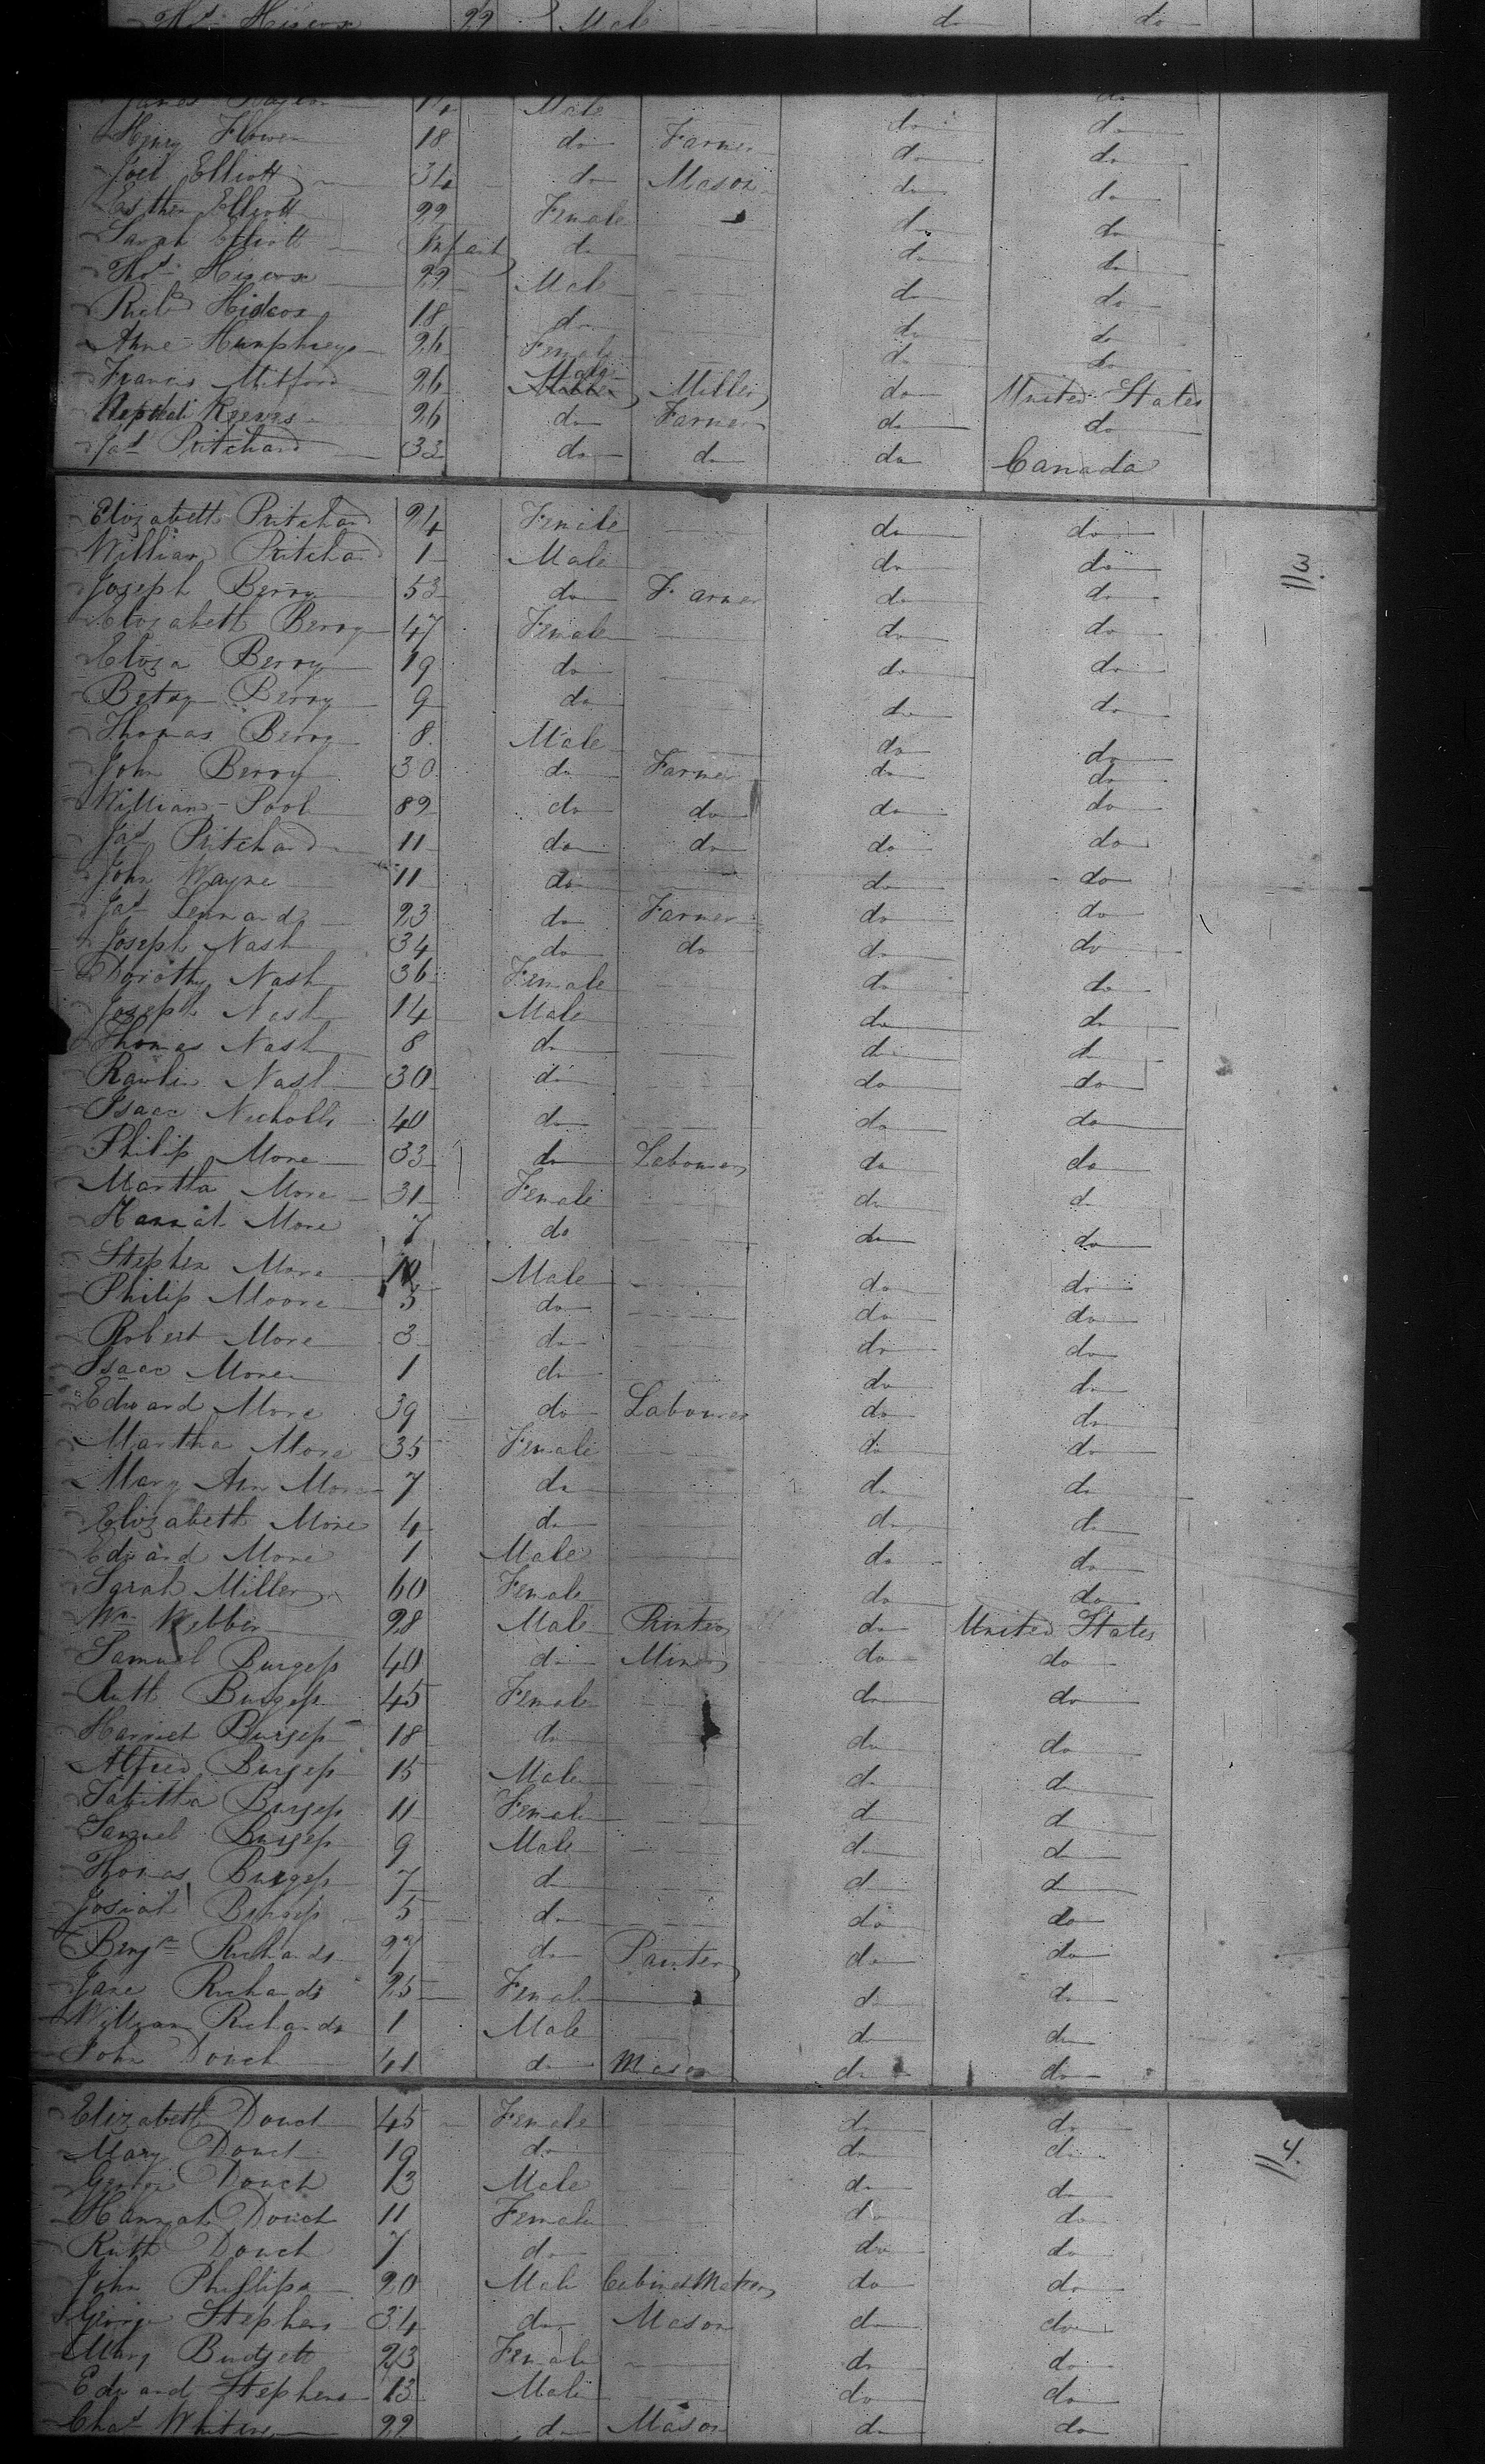 Thos Hiscox 22 Male do do
Male do
Henry Flower 18 do Farmer do do
Joel Elliott 34 do Mason do do
Esther Elliott 22 Female do do
Sarah Elliott Infant do do do
Thos Hiscox 22 Male do do
Richd Hidcox 18 do do do
Anne Humphreys 26 Female do do
Francis Mitford 26 Male Miller do United States
Reeves 26 do Farmer do do
Jas Pritchard 33 do do do Canada
Elizabeth Pritchard 24 Female do do
113.
William Pritchard 1 Male do do
Joseph Berry 53 do Farmer do do
Elizabeth Berry 47 Female do do
Eliza Berry 19 do do do
Betsy Berry 9 do do do
Thomas Berry 8 Male do do
John Berry 30 do Farmer do do
William 89 do do do do
Jas Pritchard 11 do do do do
John Wayne 11 do do do
Jas Lennard 23 do Farmer do do
Joseph Nash 34 do do do do
Dorothy Nash 36 Female do do
Joseph Nash 14 Male do do
Thomas Nash 8 do do do
Nash 30 do do do
Isaac Nicholls 40 do do do
Philip More 33 do Labourer do do
Martha More 31 Female do do
Hannah More 7 do do do
Stephen More 10 Male do do
Philip Moore 5 do do do
Robert More 3 do do do
Isaac More 1 do do do
Edward More 39 do Labourer do do
Martha More 35 Female do do
Mary Ann More 7 do do do
Elizabeth More 4 do do do
Edward More 1 Male do do
Sarah Miller 60 Female do do
Wm Webber 28 Male Printer do United States
Samuel Burgess 40 do Miner do do
Ruth Burgess 45 Female do do
Harriet Burgess 18 do do do
Alfred Burgess 15 Male do do
Tabitha Burgess 11 Female do do
Samuel Burgess 9 Male do do
Thomas Burgess 7 do do do
Josiah Burgess 5 do do do
Benjn Richards 27 do Painter do do
Jane Richards 25 Female do do
William Richards 1 Male do do
John Douch 41 do Mason do do
Elizabeth Douch 45 Female do do
114.
Mary Douch 19 do do do
George Douch 13 Male do do
Hannah Douch 11 Female do do
Ruth Douch 7 do do do
John Phillips 20 Male Cabinet Maker do do
George Stephens 34 do Mason do do
Mary Budgett 23 Female do do
Edward Stephens 13 Male do do
Chas 22 do Mason do do